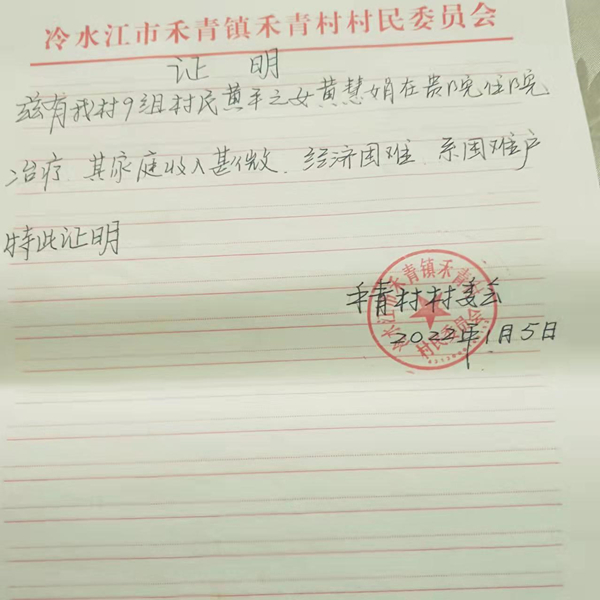 冷水江市禾青镇禾青村村民委员会
证 明
兹有我村9组村民黄平之女黄慧娟在贵院住院
治疗,其家庭收入甚微、经济困难、系困难户
特此证明
禾青村村委会
2022年1月5日
冷水江市禾青镇禾青村
村民委员会